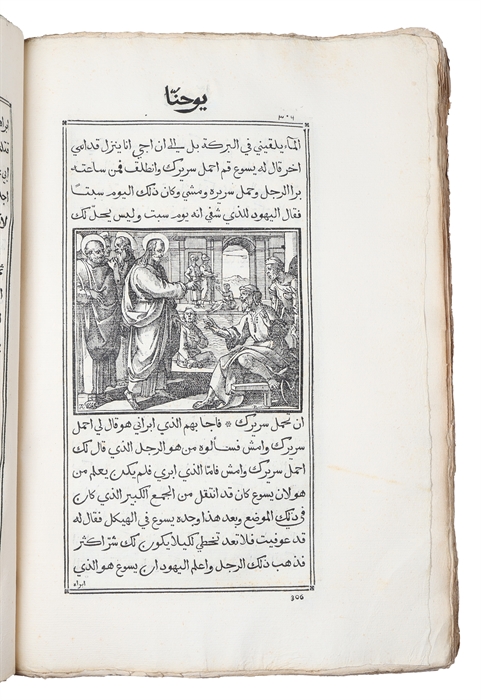 يوحنّا
٣٠٦
الماء يلقيني في البركة بل الى ان اجي انا ينزل قدامي
اخر قال له يسوع قم احمل سريرك وانطلق فمن ساعته
برا الرجل وحمل سريره ومشي وكان ذلك اليوم سبتا
فقال اليهود للذي شفي انه يوم سبت وليس يحل لك
ان تحمل سريرك * فاجابهم الذي ابراني هو قال لي احمل
سريرك وامش فسألوه من هو الرجل الذي قال لك
احمل سريرك وامش فامّا الذي ابري فلم يكن يعلم من
هو لان يسوع كان قد انتقل من الجمع الكبير الذي كان
في ذلك الموضع وبعد هذا وجده يسوع في الهيكل فقال له
قد عوفيت فلا تعد تخطي لكيلا يكون لك شرّ اكثر
فذهب ذلك الرجل واعلم اليهود ان يسوع هو الذي
ابراه
306